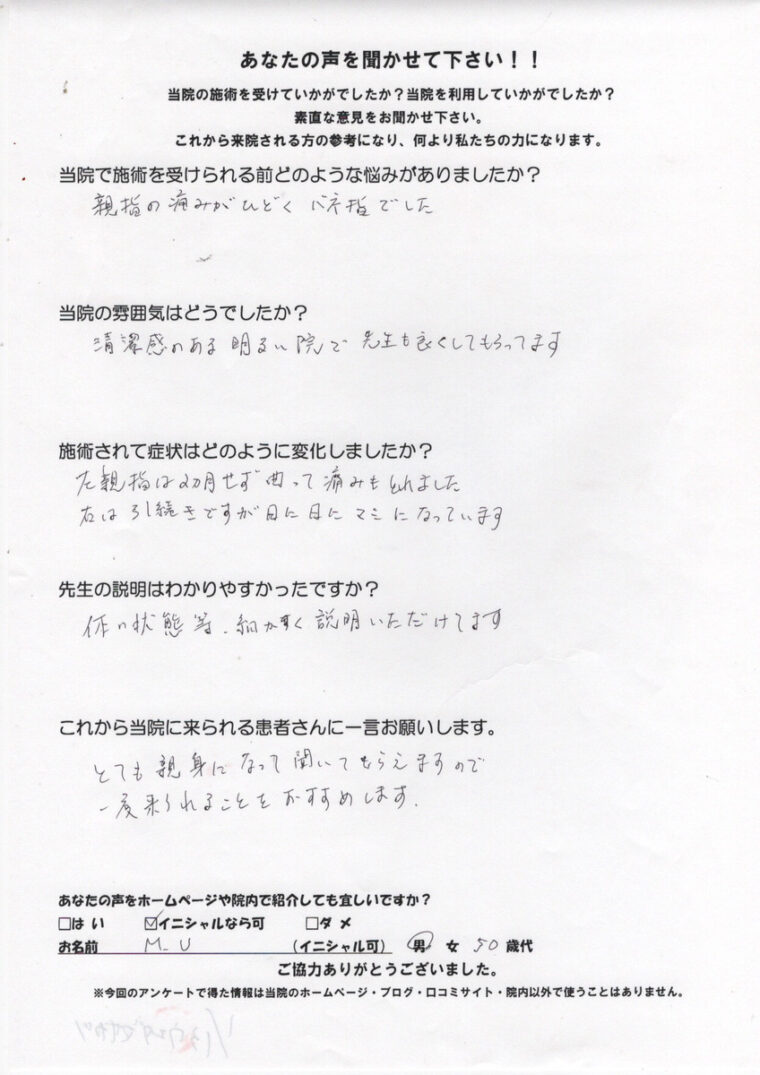 あなたの声を聞かせて下さい！！
当院の施術を受けていかがでしたか？当院を利用していかがでしたか？
素直な意見をお聞かせ下さい。
これから来院される方の参考になり、何より私たちの力になります。
当院で施術を受けられる前どのような悩みがありましたか？
親指の痛みがひどく バネ指でした
当院の雰囲気はどうでしたか？
清潔感のある 明るい院で 先生も良くしてもらってます
施術されて症状はどのように変化しましたか？
左親指は 切開せず 曲って 痛みもとれました
右は 引続きですが 日に日に マシになっています
先生の説明はわかりやすかったですか？
体の状態等、細かく 説明いただけてます
これから当院に来られる患者さんに一言お願いします。
とても 親身に なって 聞いて もらえますので
一度来られることを おすすめします.
あなたの声をホームページや院内で紹介しても宜しいですか？
□は い ☑イニシャルなら可 □ダ メ
お名前 M.U (イニシャル可) 男 女 50 歳代
ご協力ありがとうございました。
※今回のアンケートで得た情報は当院のホームページ・ブログ・口コミサイト・院内以外で使うことはありません。